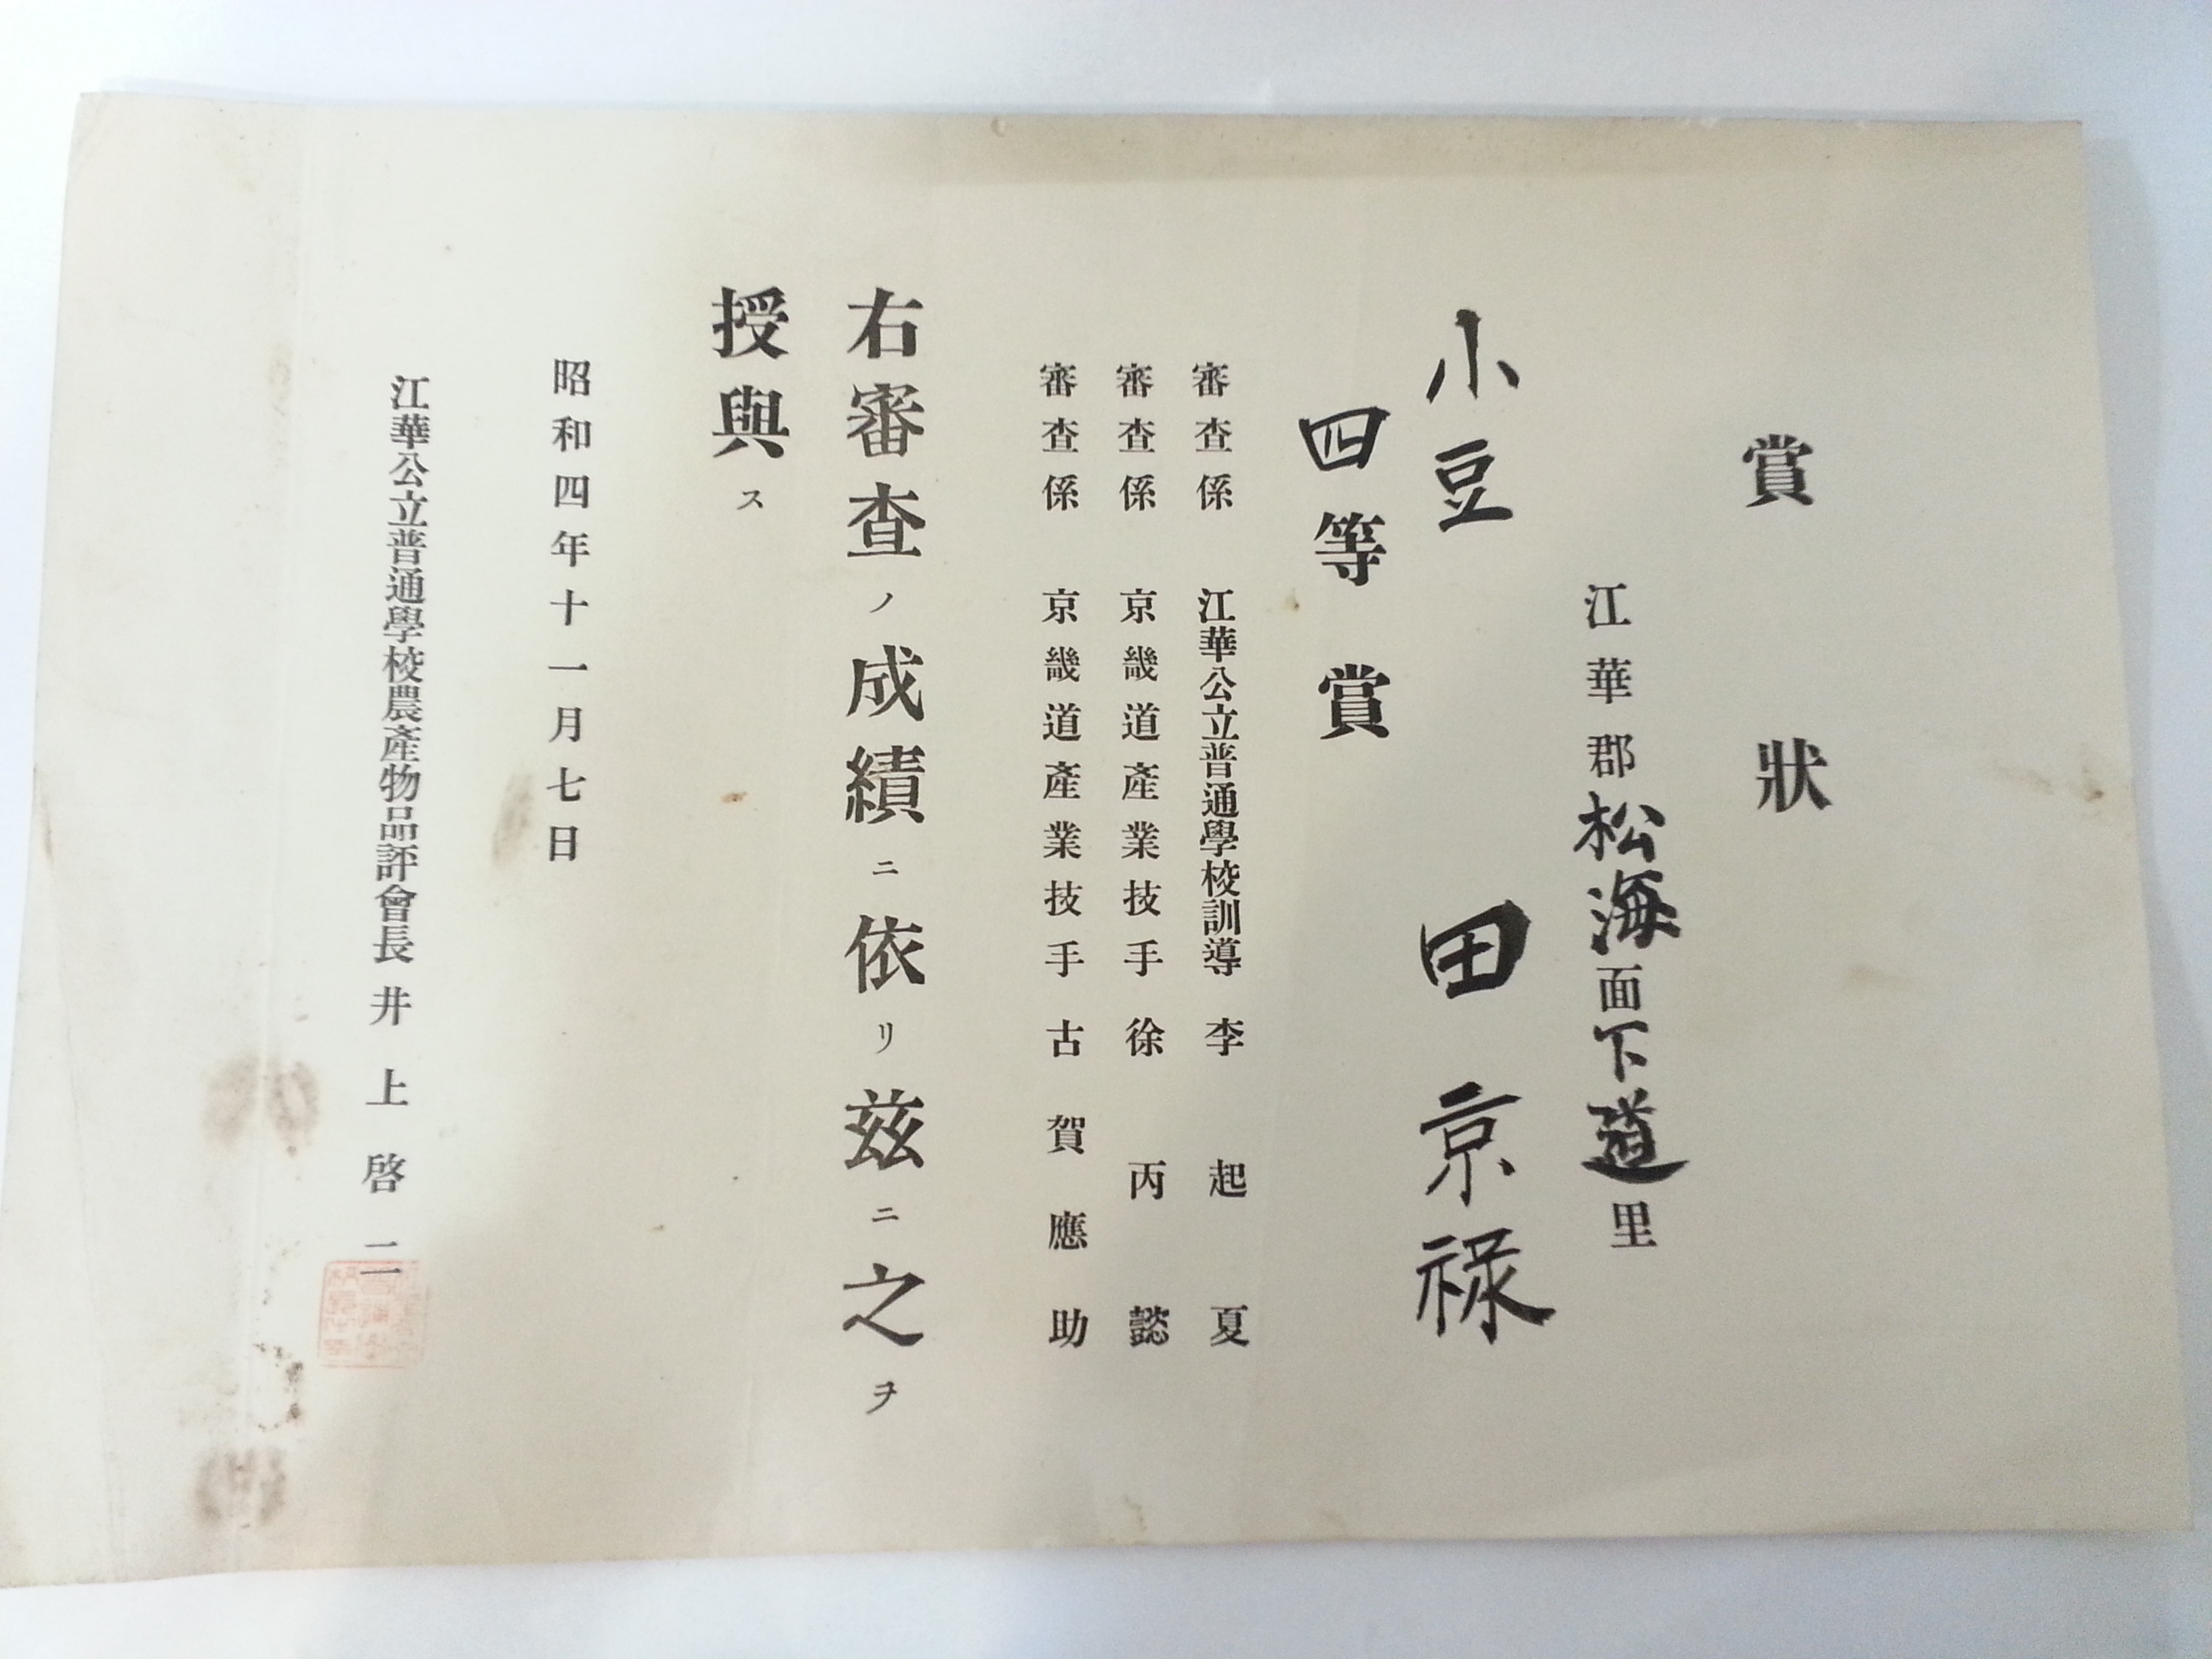 賞狀
江華郡松海面下道里
小豆 田京祿
四等賞
審査係 江華公立普通學校訓導 李起夏
審査係 京畿道產業技手 徐丙懿
審査係 京畿道產業技手 古賀應助
右審査ノ成績ニ依リ玆ニ之ヲ
授與ス
昭和四年十一月七日
江華公立普通學校農產物品評會長 井上啓二